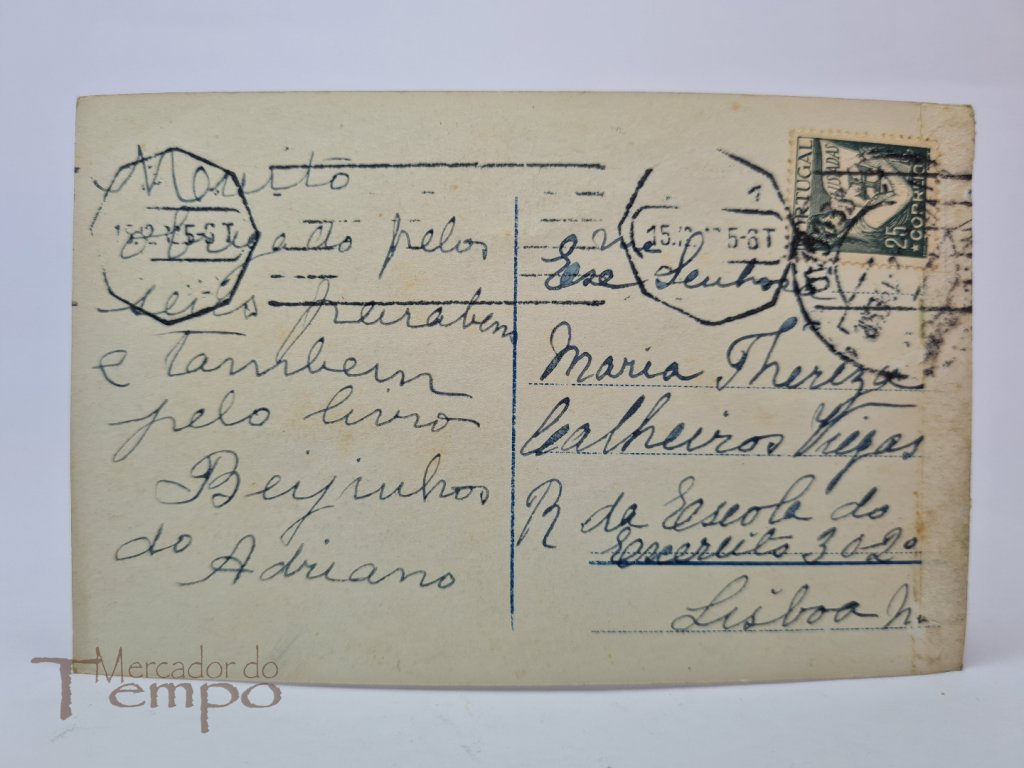 Muito
obrigado pelos
seus parabens
e tambem
pelo livro
Beijinhos
do
Adriano
Exma Senhora
Maria Thereza
Calheiros Viegas
R da Escola do
Exercito 3 o 2º
Lisboa N
PORTUGAL
LUSIADAS
25 COPRMO
15.12 5-6T
15.12 5-6T
1
Mercador do
Tempo